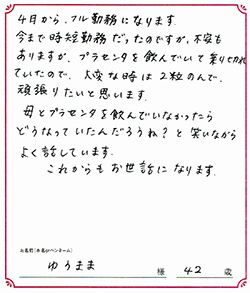 4月から、フル勤務になります。
今まで時短勤務だったのですが、不安も
ありますが、プラセンタを飲んでいて乗り切れ
ていたので、大変な時は2粒のんで、
頑張りたいと思います。
母とプラセンタを飲んでいなかったら
どうなっていたんだろうね?と笑いながら
よく話しています。
これからもお世話になります。
お名前(本名orペンネーム)
ゆうまま 様 42 歳